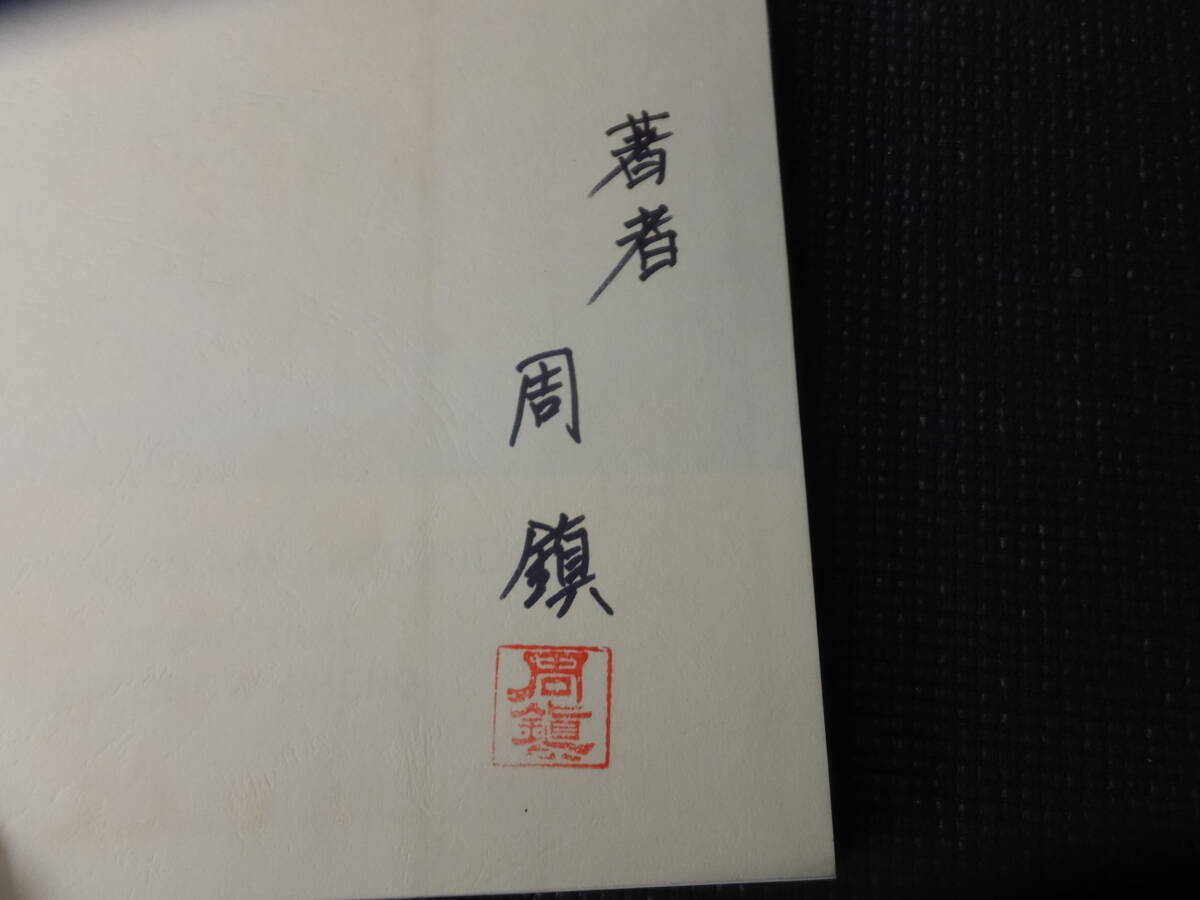 著者
周鎮
周鎮